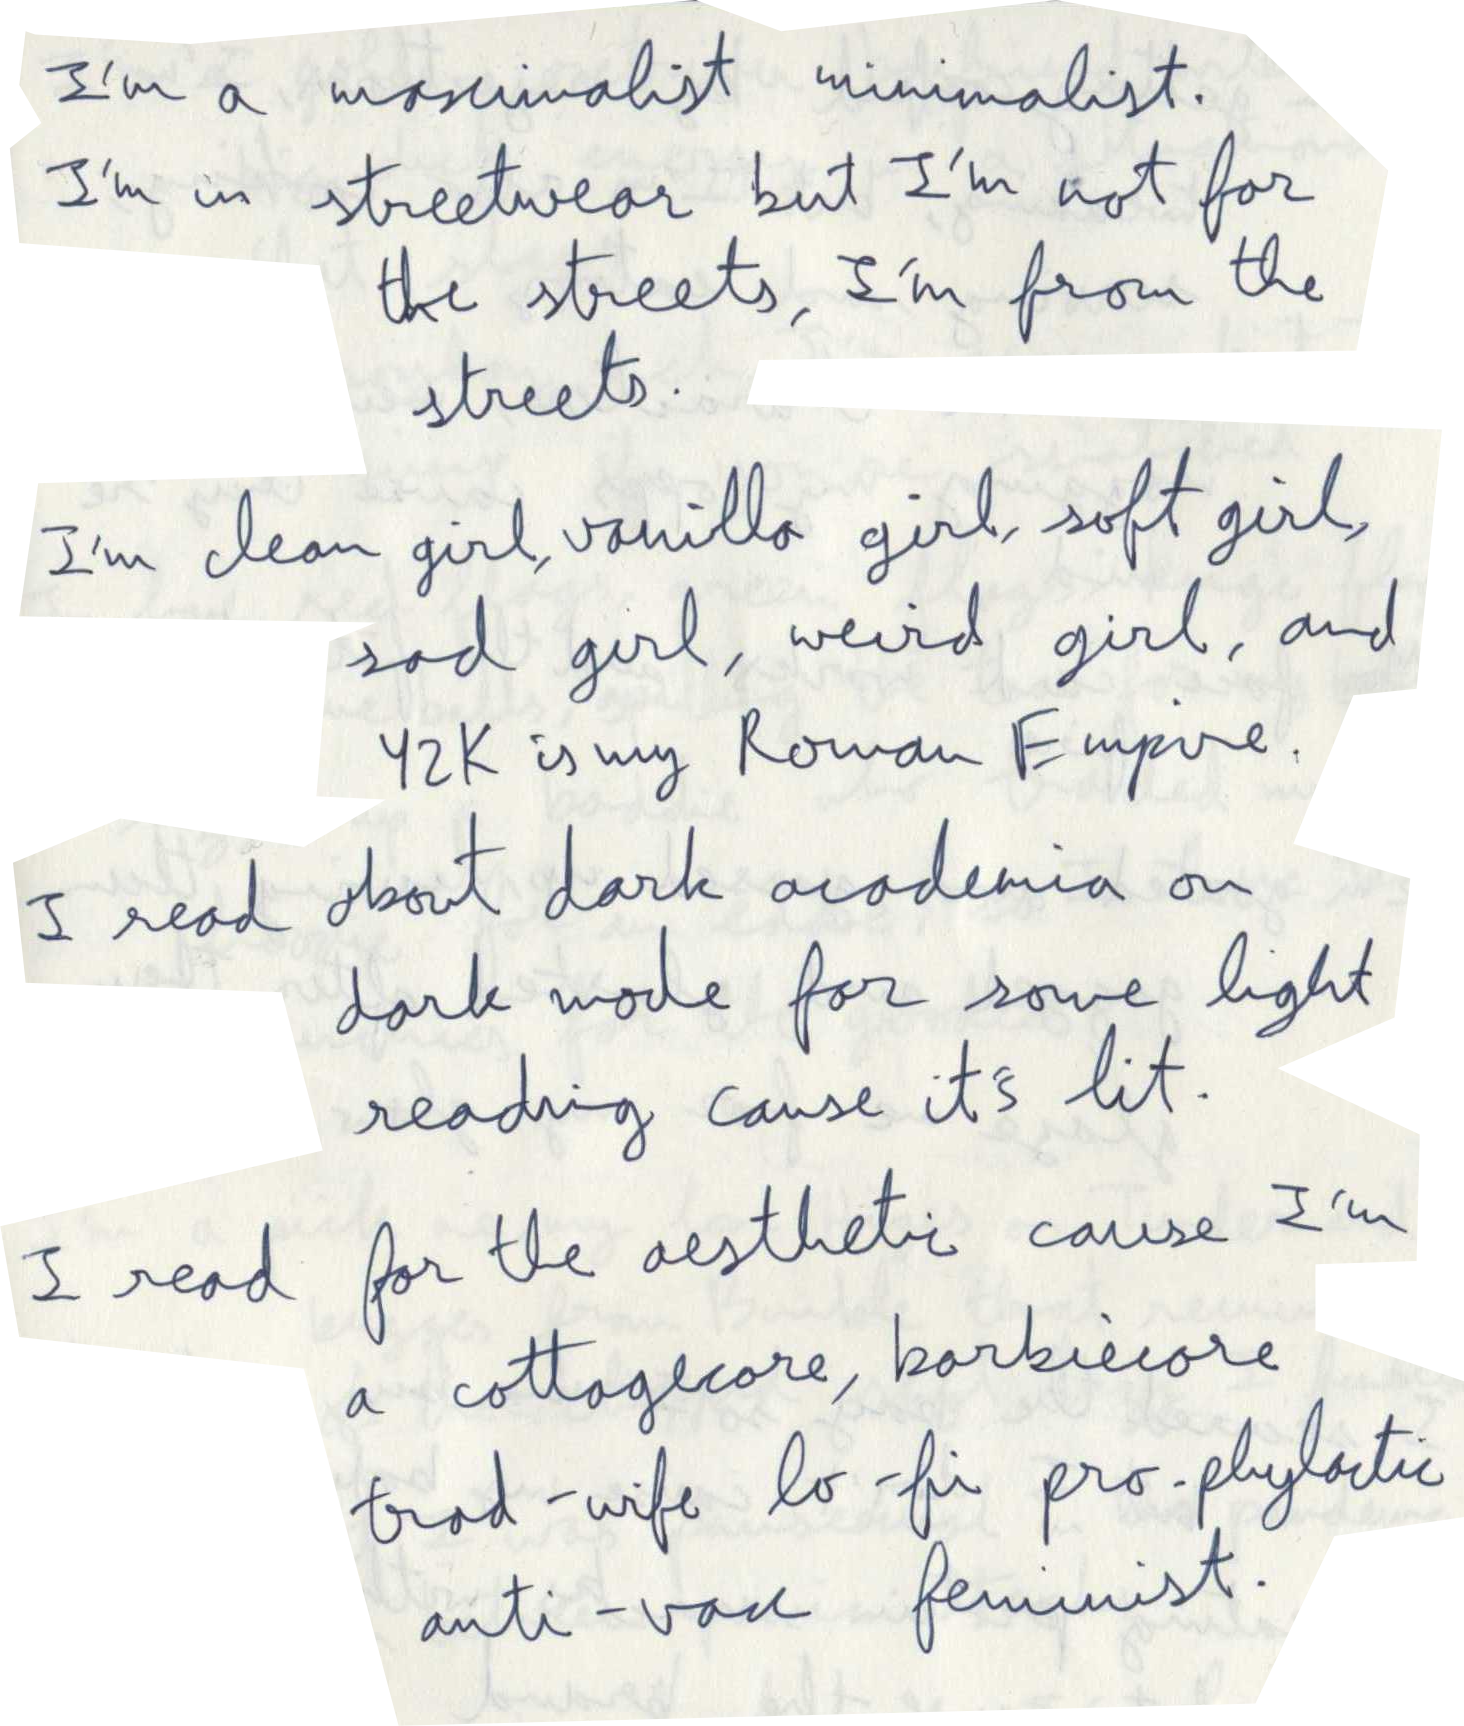 I'm a maximalist minimalist.
I'm in streetwear but I'm not for
the streets, I'm from the
streets.
I'm clean girl, vanilla girl, soft girl,
sad girl, weird girl, and
Y2K is my Roman Empire.
I read about dark academia on
dark mode for some light
reading cause it's lit.
I read for the aesthetic cause I'm
a cottagecore, barbiecore
trad-wife lo-fi pro-phylactic
anti-vax feminist.